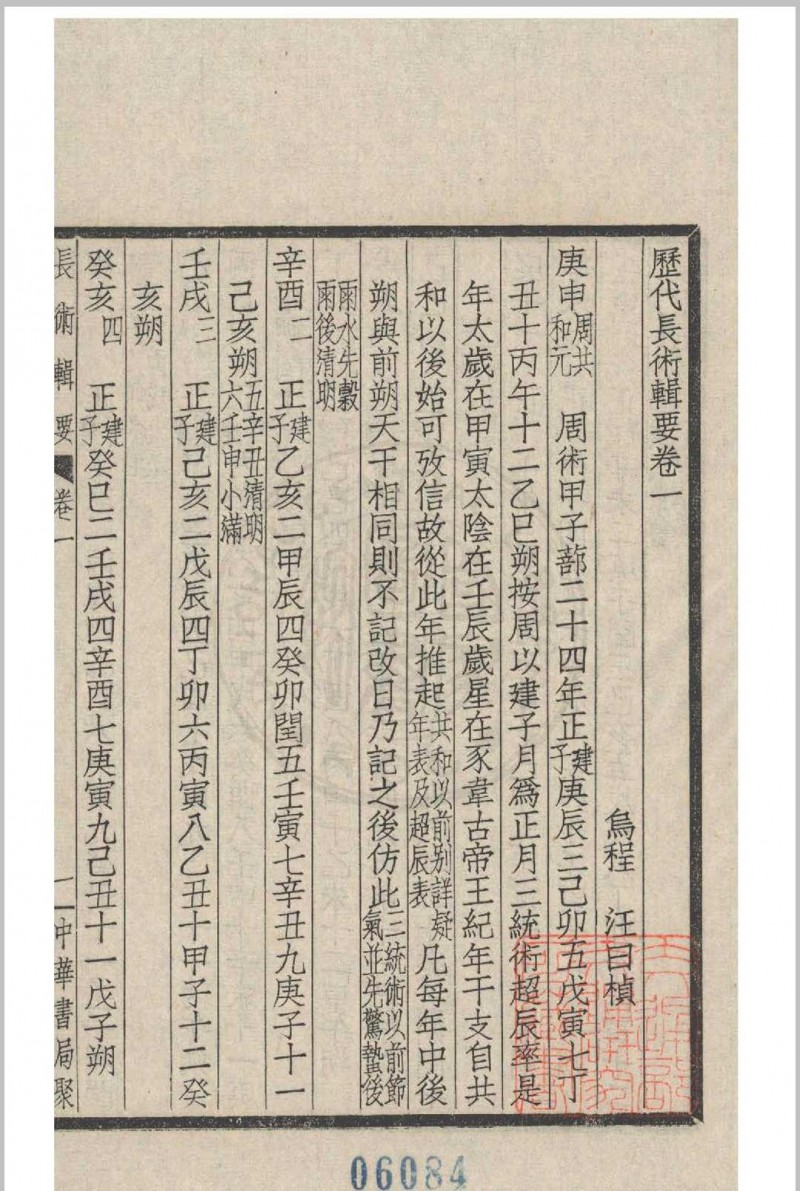 歷代長術輯要卷一
烏程 汪曰楨
庚申周共和元 周術甲子蔀二十四年正建子庚辰三己卯五戊寅七丁
丑十丙午十二乙巳朔按周以建子月爲正月三統術超辰率是
年太歲在甲寅太陰在壬辰歲星在豕韋古帝王紀年干支自共
和以後始可攷信故從此年推起共和以前別詳疑年表及超辰表凡每年中後
朔與前朔天干相同則不記改日乃記之後仿此三統術以前節氣並先驚蟄後
雨水先穀雨後清明
辛酉二 正建子乙亥二甲辰四癸卯閏五壬寅七辛丑九庚子十一
己亥朔五辛丑清明六壬申小滿
壬戌三 正建子己亥二戊辰四丁卯六丙寅八乙丑十甲子十二癸
亥朔
癸亥四 正建子癸巳二壬戌四辛酉七庚寅九己丑十一戊子朔
長術輯要 卷一 一 中華書局聚
06084